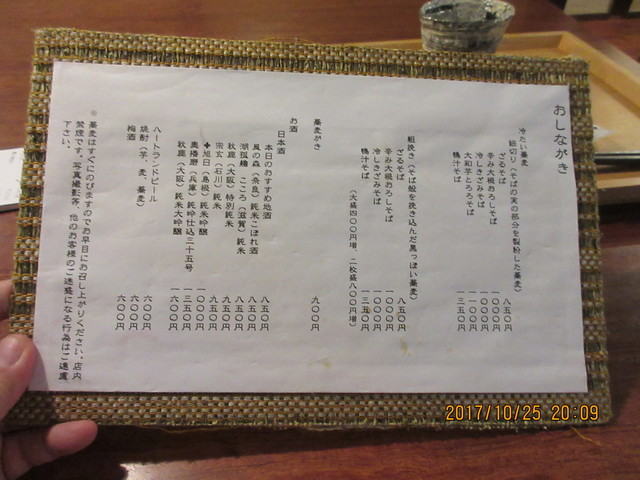 おしながき
冷たい蕎麦
細切り（そばの実の部分を製粉した蕎麦）
ざるそば 八五〇円
辛み大根おろしそば 一〇〇〇円
冷しきざみそば 一〇〇〇円
大和芋とろろそば 一一〇〇円
鴨汁そば 一三五〇円
粗挽き（そば殻を挽き込んだ黒っぽい蕎麦）
ざるそば 八五〇円
辛み大根おろしそば 一〇〇〇円
冷しきざみそば 一〇〇〇円
鴨汁そば 一三五〇円
（大盛四〇〇円増、二枚盛八〇〇円増）
蕎麦がき 九〇〇円
お酒
日本酒
本日のおすすめ地酒 八五〇円
風の森（奈良）純米こぼれ酒 八五〇円
湖弧艪 こころ（滋賀）純米 八五〇円
秋鹿（大阪）特別純米 九五〇円
宗玄（石川）純米 九五〇円
✤旭日（島根）純米吟醸 一〇〇〇円
奥播磨（兵庫）純吟仕込三十五号 一三五〇円
秋鹿（大阪）純米大吟醸 一六〇〇円
ハートランドビール 六〇〇円
焼酎（芋、麦、蕎麦） 六〇〇円
梅酒 六〇〇円
※ 蕎麦はすぐにのびますのでお早目にお召し上がりください。店内
禁煙です。写真撮影等、他のお客様のご迷惑になる行為はご遠慮
下さい。
2017/10/25 20:09